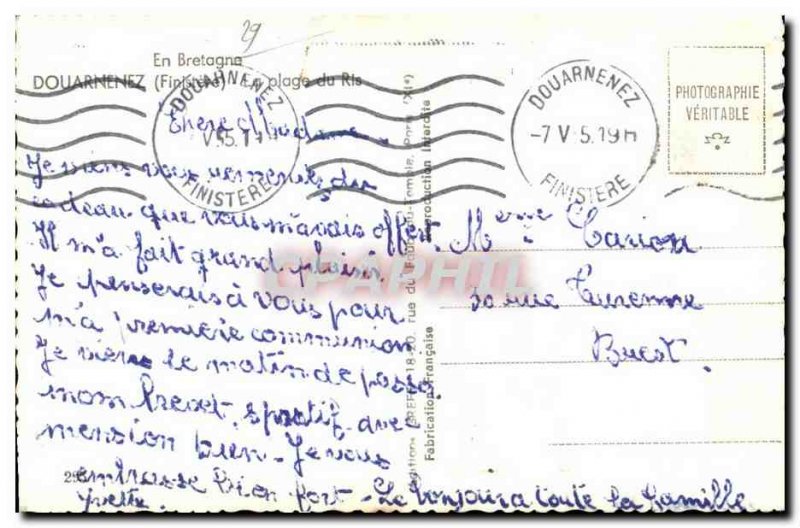 29
En Bretagne
DOUARNENEZ (Finistère) - La plage du Ris
DOUARNENEZ
FINISTERE
DOUARNENEZ
-7 V 5.19H
FINISTERE
PHOTOGRAPHIE
VÉRITABLE
Chère Madame
Je viens vous remerciés du
cadeau que vous m'avais offert.
Il m'a fait grand plaisir
Je penserais à vous pour
m'a première communion.
Je viens le matin de passé
mon brevet sportif avec
mension bien - Je vous
embrasse bien fort - Le bonjour a toute la famille
Yvette.
rue du Temple, Paris (XIe)
Reproduction interdite
Fabrication Française
Mme Cariou
30 rue Turenne
Brest.
CPAPHIL